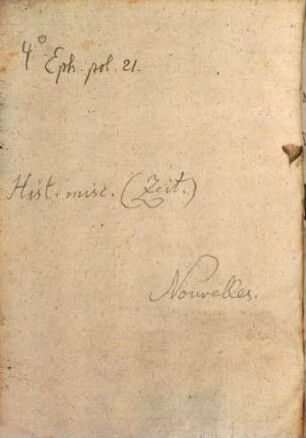 4° Eph. pol. 21.
Hist. misc. (Zeit.)
Nouvelles.